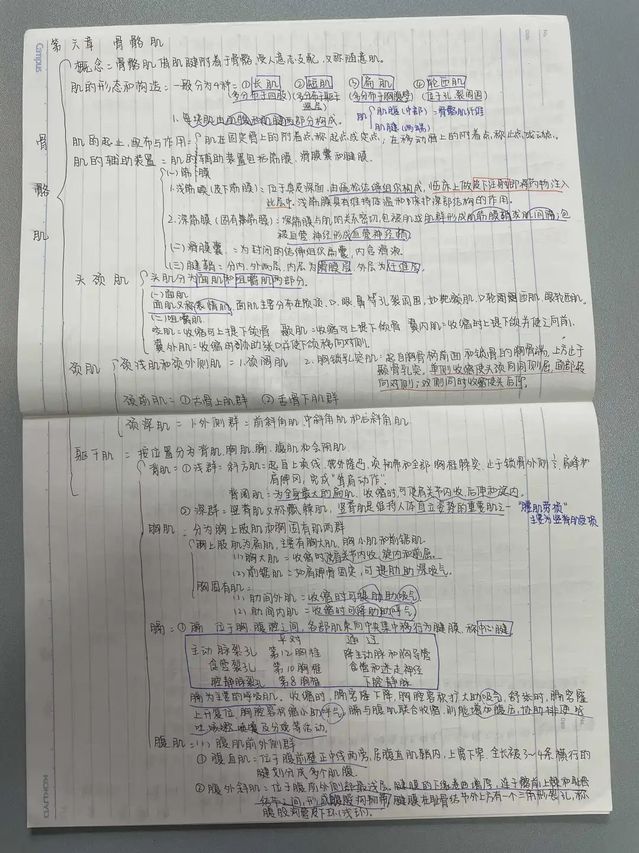 第六章 骨骼肌
概念=骨骼肌借肌腱附着于骨骼,受人意志支配,又称随意肌。
肌的形态和构造:一般分为4种=①长肌 ②短肌 ③扁肌 ④轮匝肌
(多分布于四肢) (多分布于躯干深层) (多分布于胸腹壁) (位于孔裂周围)
1.每块肌由肌腹和肌腱两部分构成。 肌 肌腹(中部)=骨骼肌纤维
肌腱(两端)
肌的起止、配布与作用=肌在固定骨上的附着点,称起点或定点,在移动骨上的附着点,称止点或动点。
肌的辅助装置=肌的辅助装置包括筋膜、滑膜囊和腱鞘。
(一)筋膜
1.浅筋膜(皮下筋膜):位于真皮深面,由疏松结缔组织构成,临床上做皮下注射即将药物注入
此层中。浅筋膜具有维持体温和保护深部结构的作用。
2.深筋膜(固有筋膜)=深筋膜与肌的关系密切,包被肌或肌群形成肌筋膜鞘或肌间隔;包
被血管、神经形成血管神经鞘。
(二)滑膜囊=为封闭的结缔组织扁囊,内含滑液。
(三)腱鞘=分内、外两层,内层为滑膜层,外层为纤维层。
骨骼肌
头颈肌 头肌分为面肌和咀嚼肌两部分。
(一)面肌
面肌又称表情肌,面肌主要分布在颅顶、口、眼、鼻等孔裂周围,如枕额肌、口轮匝肌、眼轮匝肌。
(二)咀嚼肌
咬肌=收缩可上提下颌骨 颞肌=收缩可上提下颌骨 翼内肌=收缩时上提下颌并使之向前。
翼外肌=收缩时可协助张口并使下颌移向对侧。
颈肌 颈浅肌和颈外侧肌=1.颈阔肌 2.胸锁乳突肌=起自胸骨柄前面和锁骨的胸骨端,上方止于
颞骨乳突,单侧收缩使头颈向同侧屈,面部转
向对侧;双侧同时收缩使头后仰。
颈前肌=①舌骨上肌群 ②舌骨下肌群
颈深肌=1.外侧群=前斜角肌、中斜角肌和后斜角肌
躯干肌=按位置分为背肌、胸肌、膈、腹肌和会阴肌
背肌=①浅群=斜方肌=起自上项线、枕外隆凸、项韧带和全部胸椎棘突,止于锁骨外侧⅓、肩峰和
肩胛冈,完成"耸肩动作"。
背阔肌=为全身最大的扁肌,收缩时,可使肩关节内收、后伸和旋内。
②深群=竖脊肌又称骶棘肌,竖脊肌是维持人体直立姿势的重要肌之一 "腰肌劳损"
主要为竖脊肌受损
胸肌:分为胸上肢肌和胸固有肌两群
胸上肢肌为扁肌,主要有胸大肌、胸小肌和前锯肌。
(1)胸大肌=收缩时使肩关节内收、旋内和前屈。
(2)前锯肌=如肩胛骨固定,可提肋助深吸气。
胸固有肌=
(1)肋间外肌=收缩时可提肋助吸气。
(2)肋间内肌=收缩时可降肋助呼气。
膈=①膈位于胸、腹腔之间,各部肌束向中央集中移行为腱膜,称中心腱
平对 通过
主动脉裂孔 第12胸椎 降主动脉和胸导管
食管裂孔 第10胸椎 食管和迷走神经
腔静脉裂孔 第8胸椎 下腔静脉
膈为主要的呼吸肌。收缩时,膈穹窿下降,胸腔容积扩大助吸气,舒张时,膈穹窿
上升复位,胸腔容积缩小助呼气;膈与腹肌联合收缩,则能增加腹压,协助排便、呕
吐、咳嗽、喷嚏及分娩等活动。
腹肌=(1)腹肌前外侧群
①腹直肌=位于腹前壁正中线两旁,居腹直肌鞘内,上宽下窄,全长被3~4条横行的
腱划分成多个肌腹。
②腹外斜肌=位于腹前外侧部最浅层,腱膜的下缘卷曲增厚,连于髂前上棘和耻骨
结节之间,形成腹股沟韧带,腱膜在耻骨结节外上方有一个三角形裂孔,称
腹股沟管皮下环(浅环)。
Campus
KOKUYO